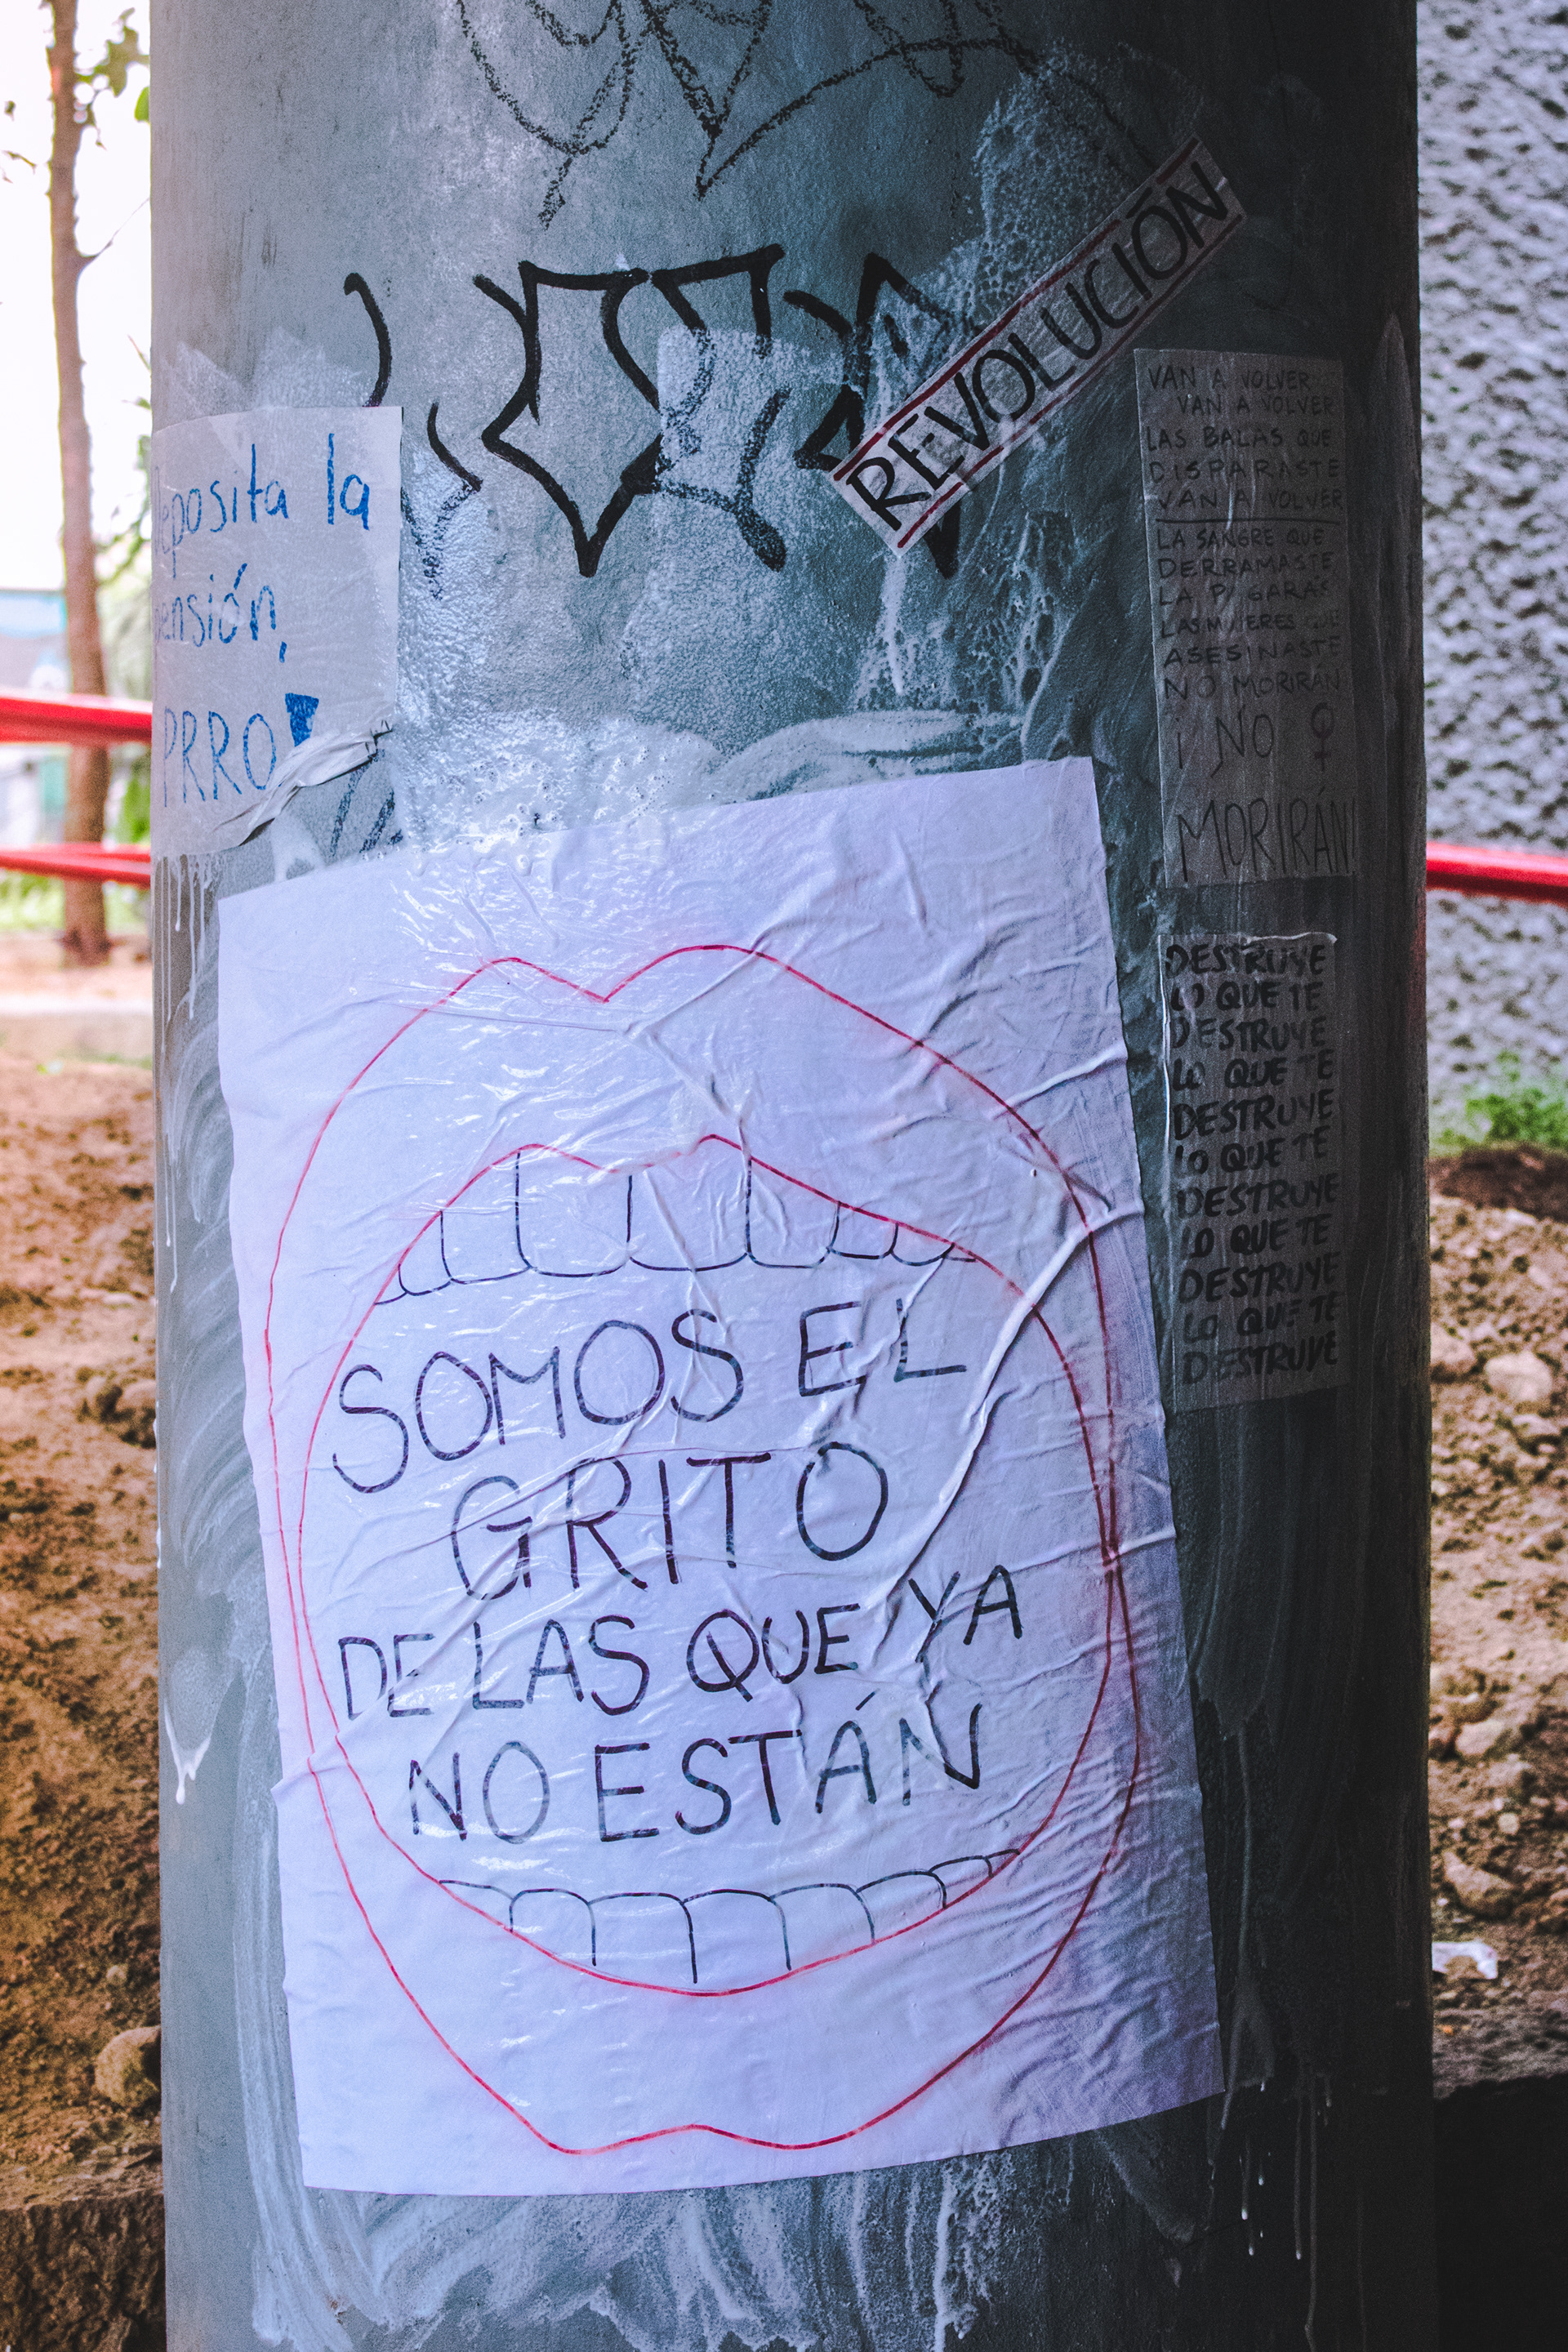 REVOLUCIÓN
Deposita la
pensión,
PRRO!
VAN A VOLVER
VAN A VOLVER
LAS BALAS QUE
DISPARASTE
VAN A VOLVER
LA SANGRE QUE
DERRAMASTE
LA PAGARÁS
LAS MUJERES QUE
ASESINASTE
NO MORIRÁN
¡NO
MORIRÁN!
DESTRUYE
LO QUE TE
DESTRUYE
LO QUE TE
DESTRUYE
LO QUE TE
DESTRUYE
LO QUE TE
DESTRUYE
LO QUE TE
DESTRUYE
SOMOS EL
GRITO
DE LAS QUE YA
NO ESTÁN